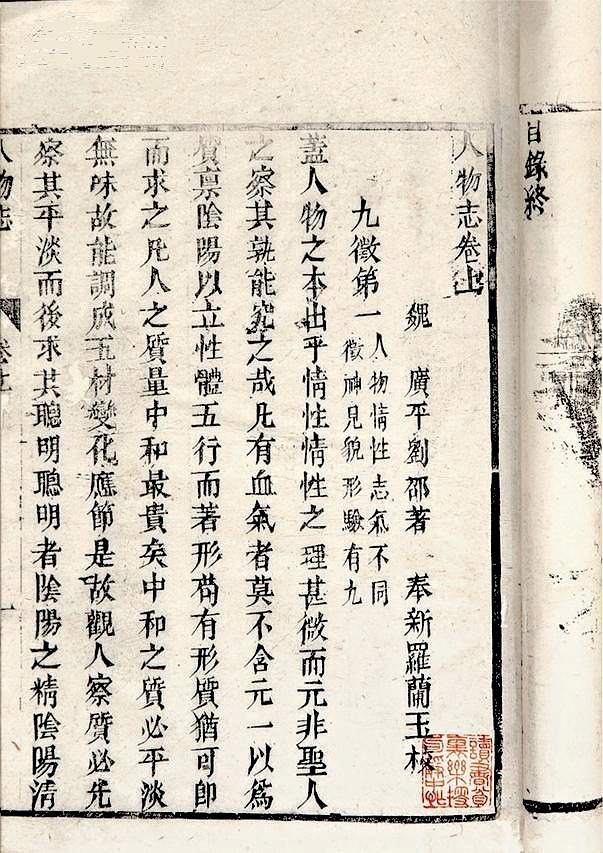 目錄終
人物志卷上
魏 廣平劉邵著 奉新羅蘭玉校
九徵第一
人物情性志氣不同
徵神見貌形驗有九
蓋人物之本出乎情性情性之理甚微而元非聖人
之察其孰能究之哉凡有血氣者莫不含元一以爲
質稟陰陽以立性體五行而著形苟有形質猶可卽
而求之凡人之質量中和最貴矣中和之質必平淡
無味故能調成五材變化應節是故觀人察質必先
察其平淡而後求其聰明聰明者陰陽之精陰陽清
人物志 卷上 一
讀書貧
裏樂搜
句靜中忙